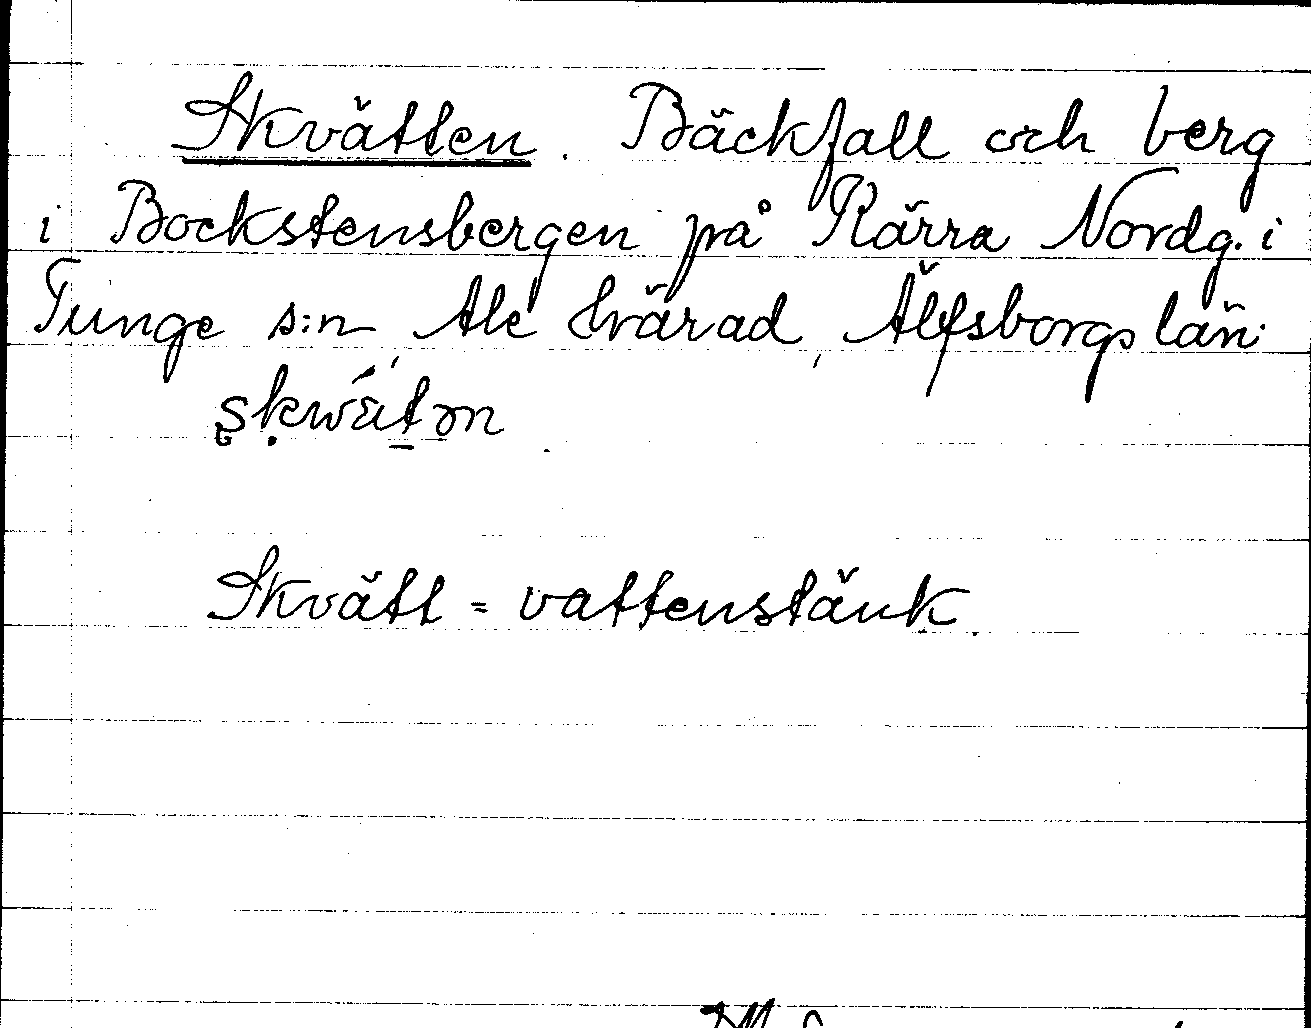 Skvätten. Bäckfall och berg
i Bockstensbergen på Kärra Nordg. i
Tunge s:n, Ale härad, Älfsborgs län.
skwätən
Skvätt = vattenstänk.